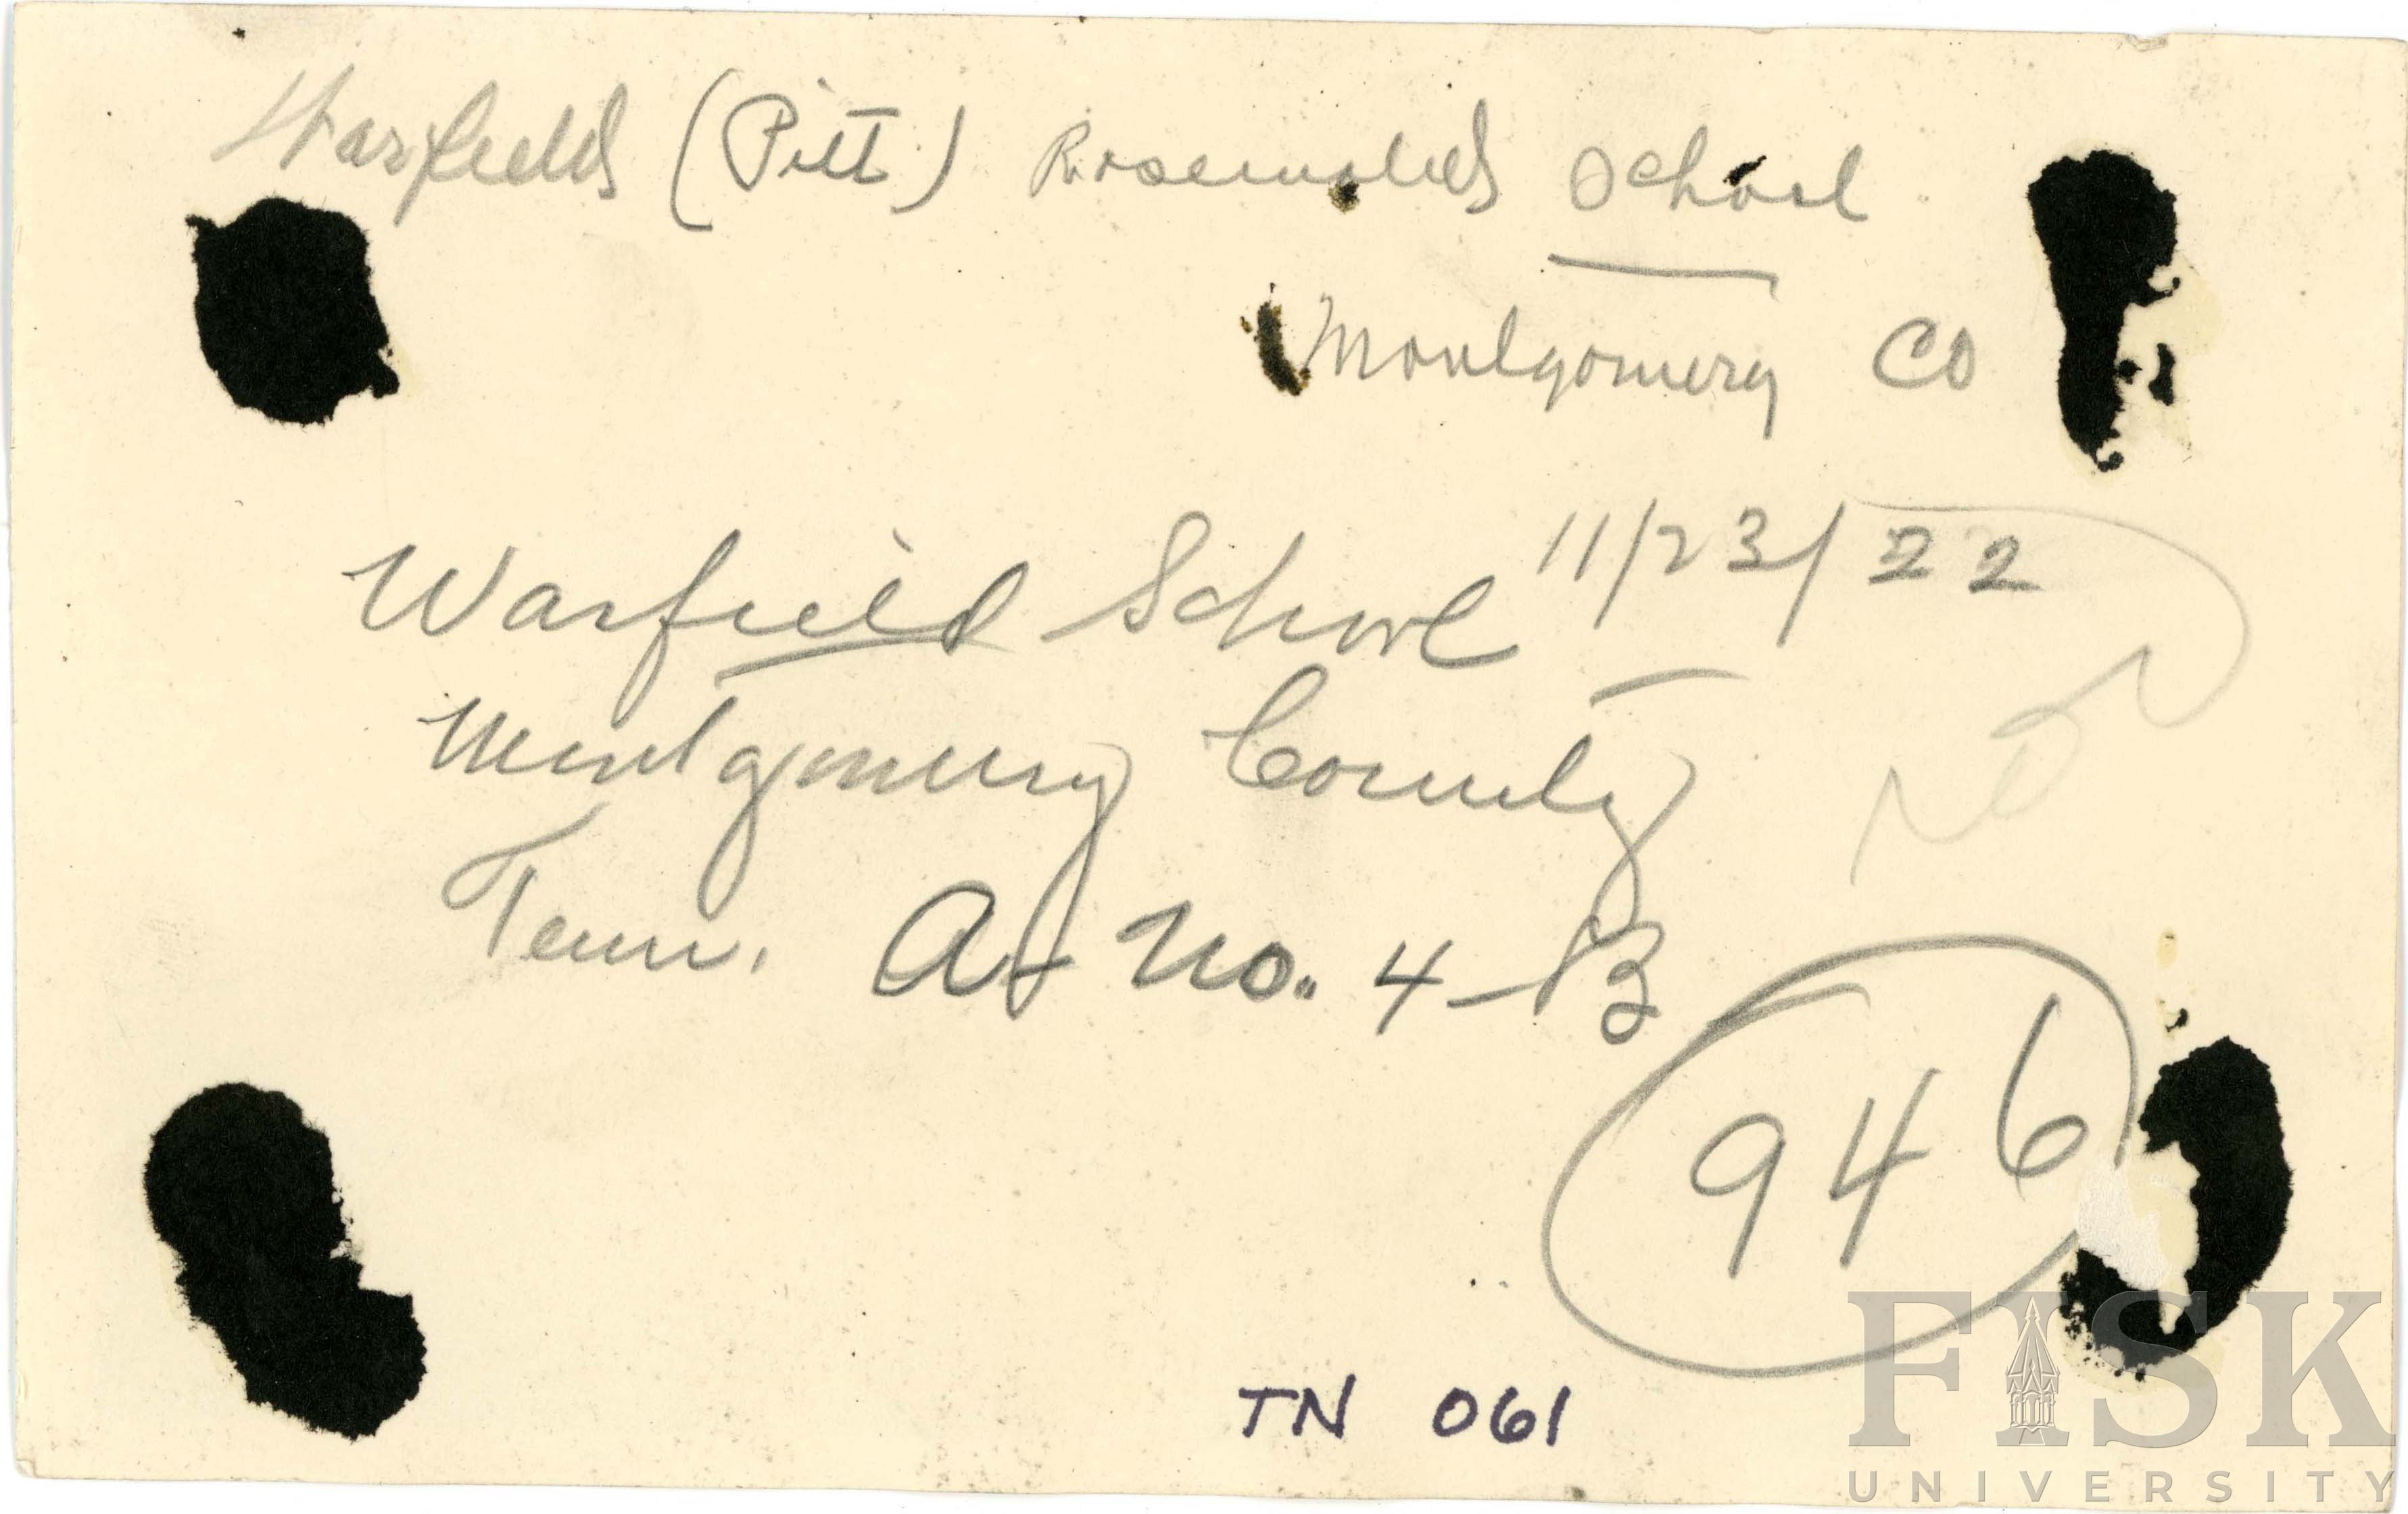 Warfield (Pitt) Rosenwald School
Montgomery Co
Warfield School 11/23/22
Montgomery County
Tenn. A- No. 4-B
946
TN 061
FISK
UNIVERSITY